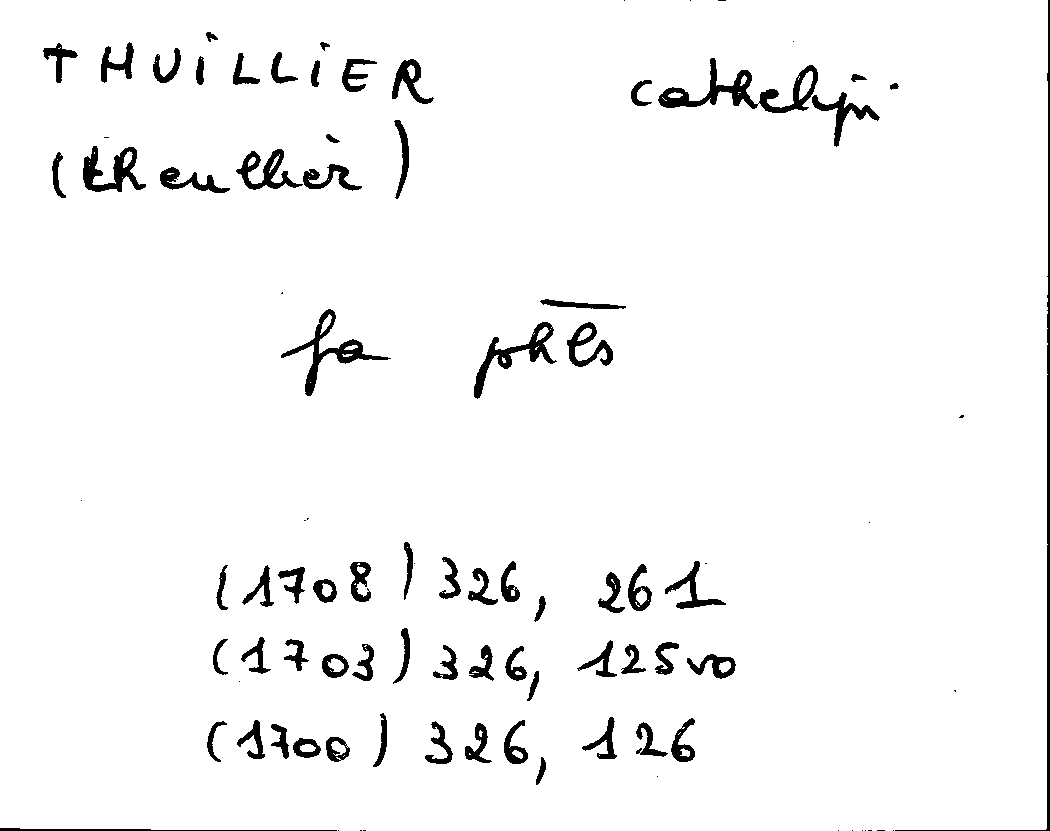 THUILLIER cathelijn
(theullier)
fa phls
(1708) 326, 261
(1703) 326, 125vo
(1700) 326, 126